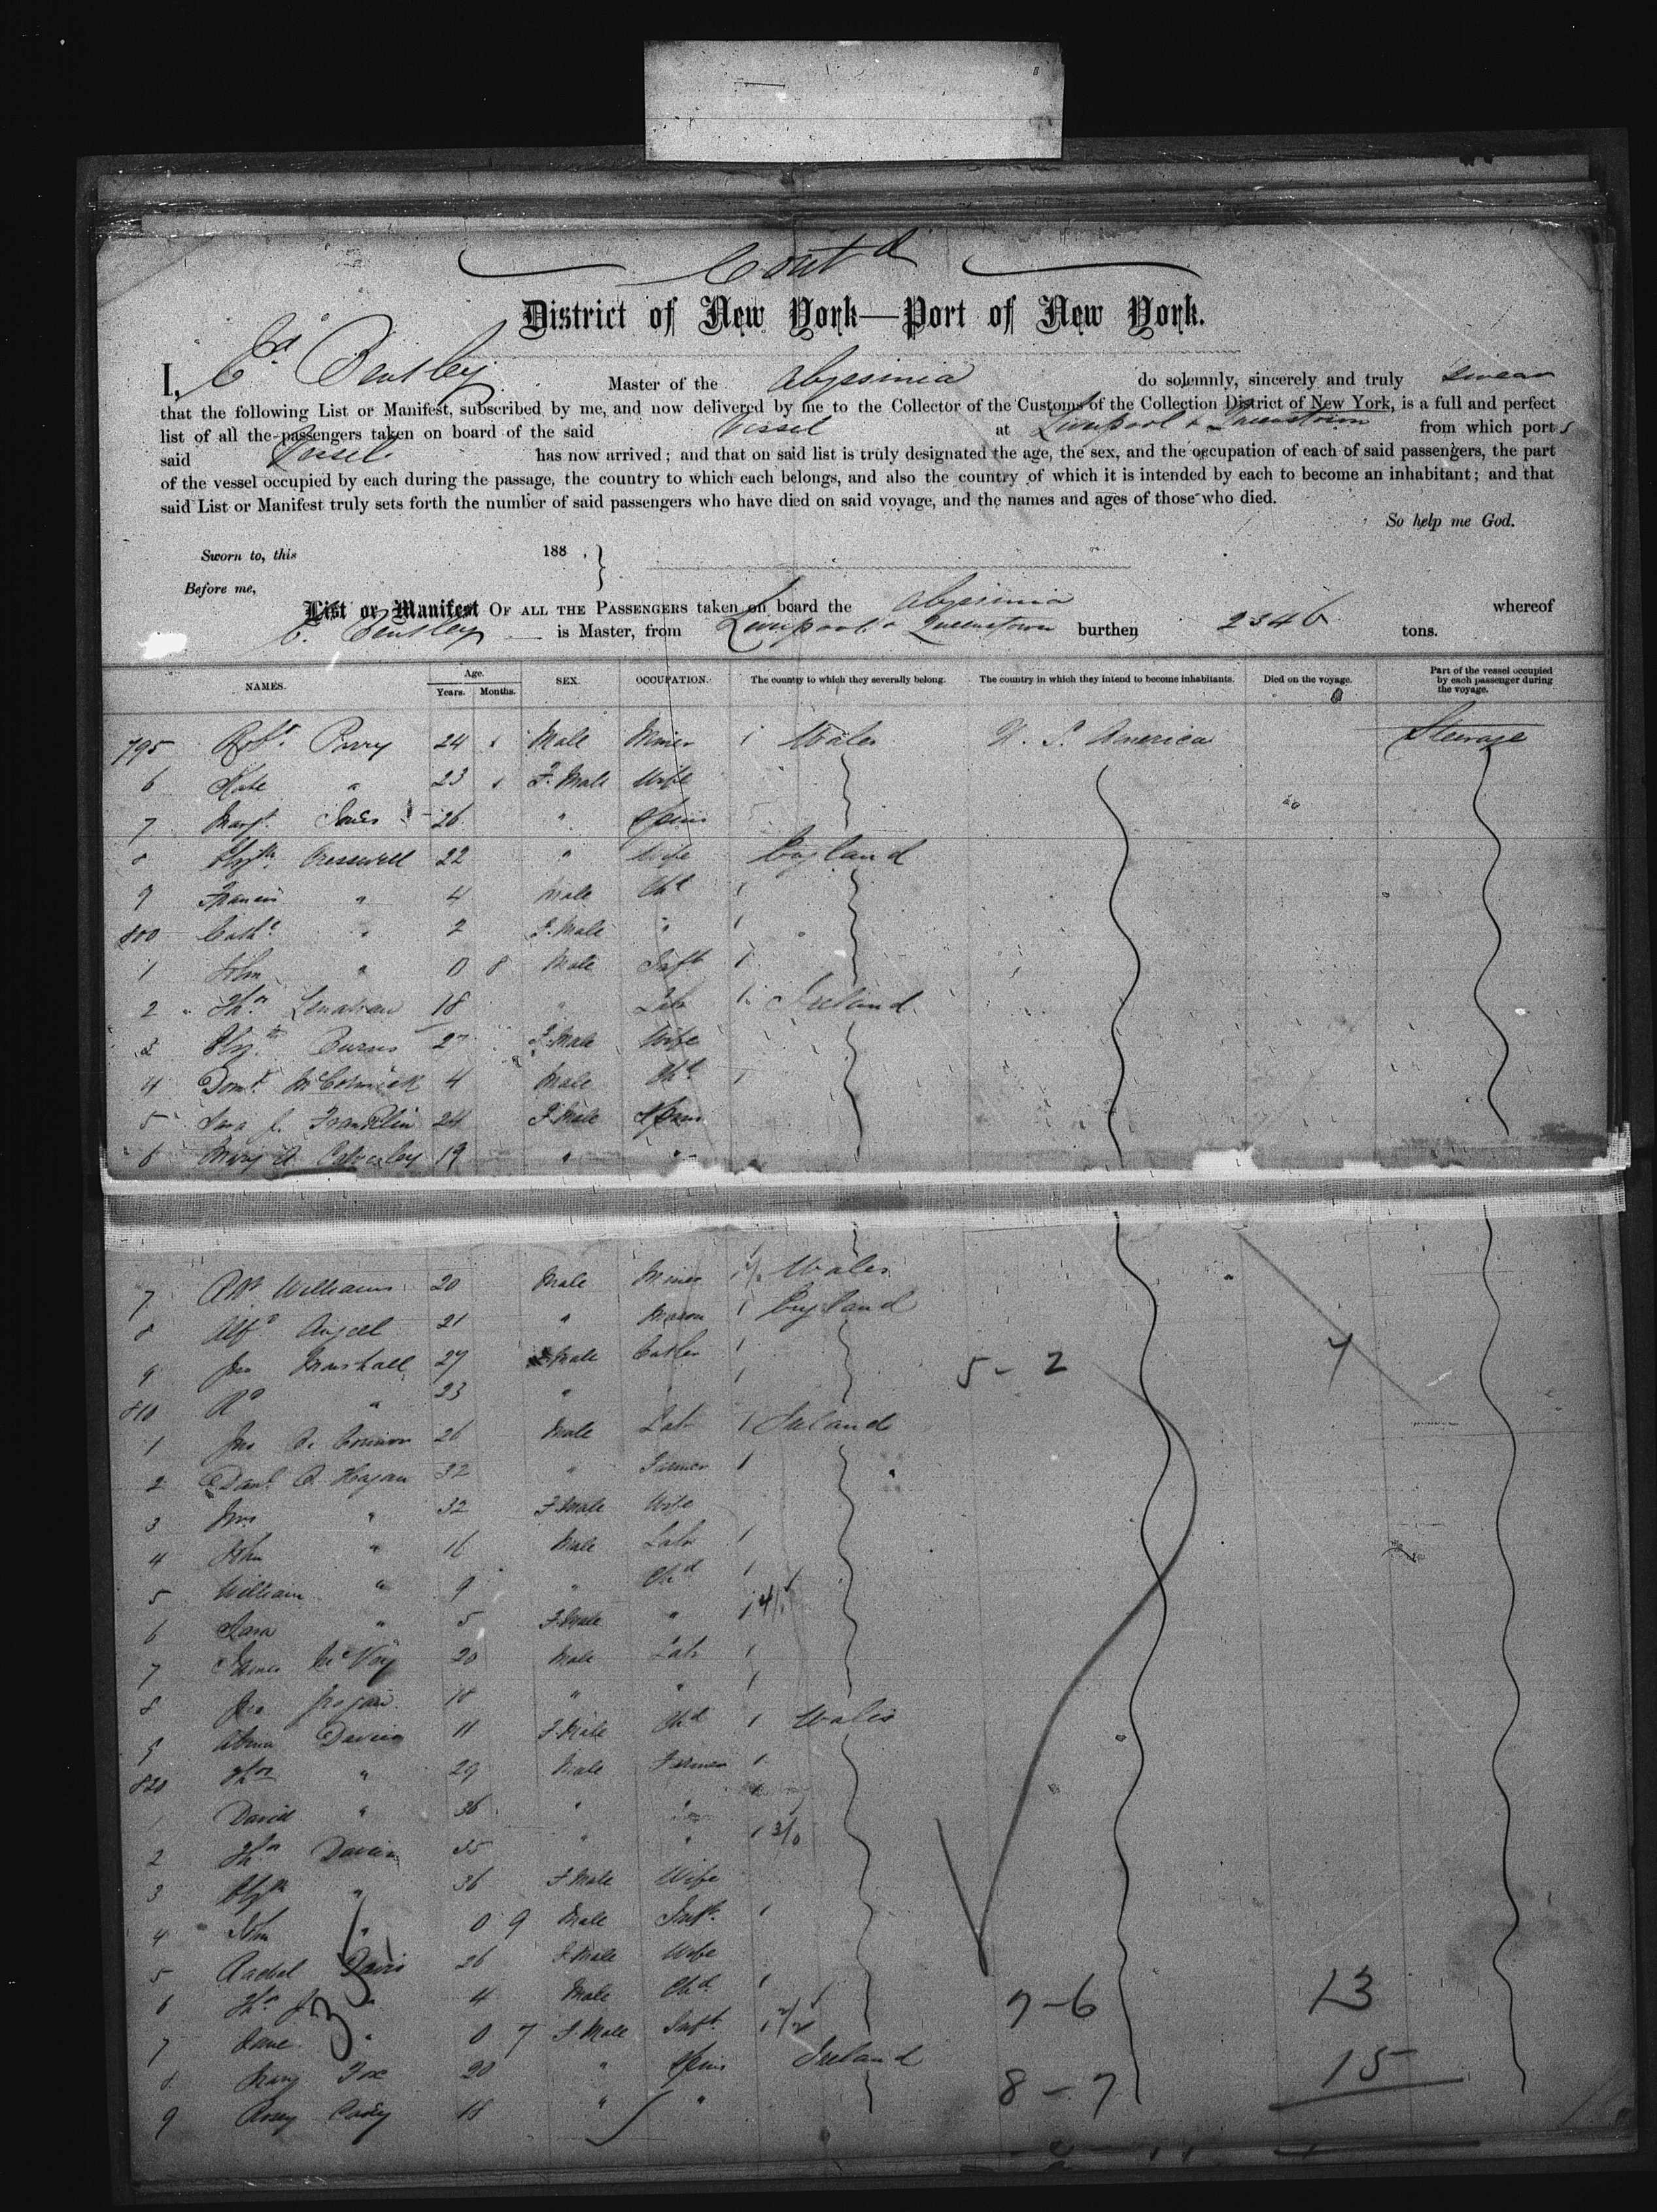 Contd
District of New York—Port of New York.
I, Ed Bentley Master of the Abyssinia do solemnly, sincerely and truly swear
that the following List or Manifest, subscribed by me, and now delivered by me to the Collector of the Customs of the Collection District of New York, is a full and perfect
list of all the passengers taken on board of the said Vessel at Liverpool & Queenstown from which ports
said Vessel has now arrived; and that on said list is truly designated the age, the sex, and the occupation of each of said passengers, the part
of the vessel occupied by each during the passage, the country to which each belongs, and also the country of which it is intended by each to become an inhabitant; and that
said List or Manifest truly sets forth the number of said passengers who have died on said voyage, and the names and ages of those who died.
So help me God.
Sworn to, this 188 .
Before me,
List or Manifest OF ALL THE PASSENGERS taken on board the Abyssinia whereof
Bentley is Master, from Liverpool & Queenstown burthen 2346 tons.
NAMES. Age. Years. Months. SEX. OCCUPATION. The country to which they severally belong. The country in which they intend to become inhabitants. Died on the voyage. Part of the vessel occupied by each passenger during the voyage.
795 Robt. Parry 24 Male Miner 1 Wales U. S. America Steerage
6 Kate " 23 F. Male Wife
7 Margt. 26 " Spins
8 Elizth. Cresswell 22 " Wife England
9 Francis " 4 Male Chd 1
800 Cathe " 2 F. Male " 1
1 John " 0 8 Male Inft 1
2 Thos. Lenahan 18 " Labr 1 Ireland
3 Elizth. Burns 27 F. Male Wife
4 Domk. McCormick 4 Male Chd. 1
5 Sara J. Franklin 24 F. Male Spins
6 Mary A 19 " "
7 Williams 20 Male Miner Wales
8 Alfd Angell 21 " Mason 1 England
9 Jno Marshall 27 Male Cutler 1 5-2 7
810 " 23 " 1
1 Jno O. Connor 26 Male Labr 1 Ireland
2 Danl. O. Hagan 32 " Farmer 1
3 Mrs " 32 F. Male Wife
4 John " 16 Male Labr 1
5 William " 9 " Chd 1
6 Sara " 5 F. Male " 1 4/1
7 James McVey 20 Male Labr 1
8 Jno 18 " " 1
9 Davies 11 F. Male Chd 1 Wales
820 Thos " 29 Male Farmer 1
1 David " 36 " "
2 Thos Davies 35 " " 1 3/0
3 Elizth " 36 F. Male Wife
4 John " 0 9 Male Inft. 1
5 Rachel Davis 26 F. Male Wife
6 Thos J. " 4 Male Chd. 1 7-6 13
7 Jane " 0 7 F. Male Inft. 1 2/2
8 Mary Fox 20 " Spins Ireland 8-7 15
9 18 " "